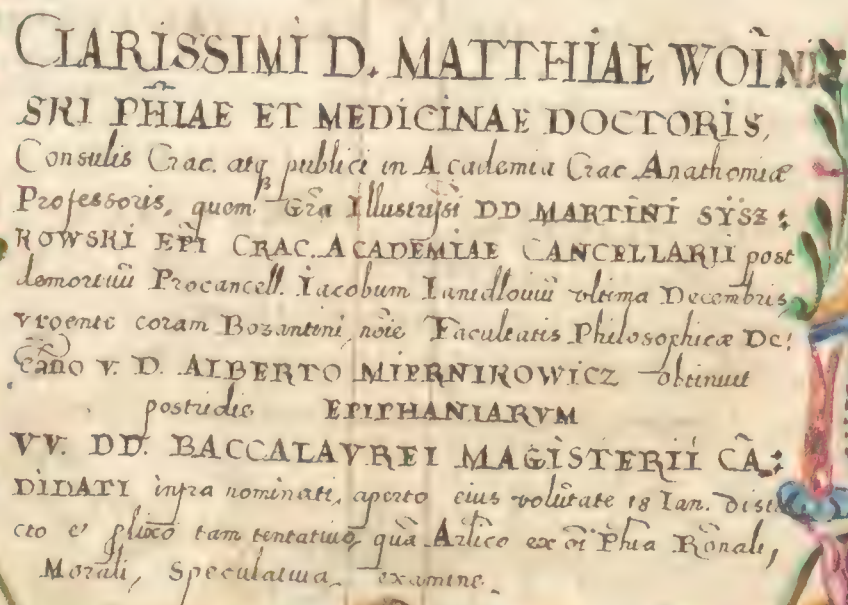 CLARISSIMI D. MATTHIAE WOÎNI
SKI PH̃IAE ET MEDICINAE DOCTORIS,
Consulis Crac. atq publici in Academia Crac Anathomiæ
Professoris, quem Gr̃a Illustrissi DD MARTINI SYSZ:
KOWSKI EP̃I CRAC. ACADEMIAE CANCELLARII post
demortuũ Procancell. Iacobum Ianidlouiũ vltima Decembris,
vrgente coram Bozantini, nõie Facultatis Philosophicæ De:
cãno V. D. ALBERTO MIERNIKOWICZ obtinuit
postridie EPIPHANIARVM
VV. DD. BACCALAVREI MAGISTERII CÃ:
DIDATI infra nominati, aperto eius volũtate 18 Ian. distri
cto e plixõ tam tentatiuo, quã Azlico ex õi Ph̃ia Rõnali,
Morali, Speculatiua examine.